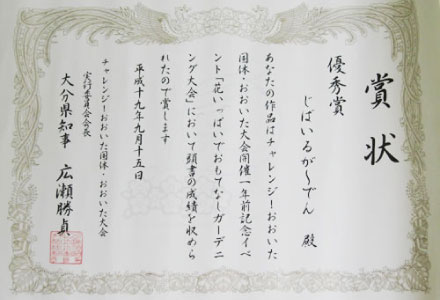 賞状
優秀賞
じばいるが〜でん 殿
あなたの作品はチャレンジ！おおいた
国体・おおいた大会開催一年前記念イベ
ント「花いっぱいでおもてなしガーデニ
ング大会」において頭書の成績を収めら
れたので賞します
平成十九年九月十五日
チャレンジ！おおいた国体・おおいた大会
実行委員会会長
大分県知事 広瀬勝貞